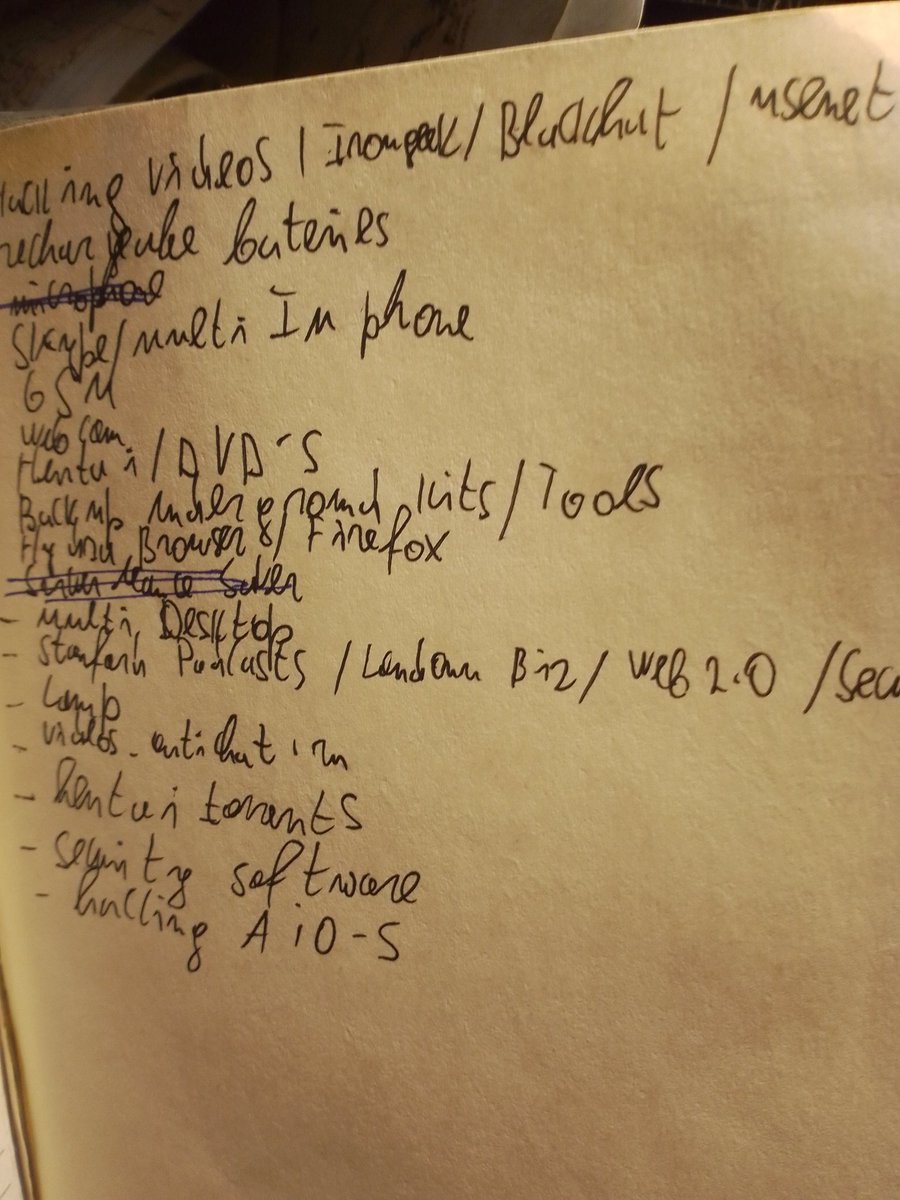 hacking videos / Irongeek / Blackhat / usenet
rechargeable bateries
microphone
Skype/multi IM phone
GSM
webcam
Hentai / DVD's
Backup underground kits/Tools
Browser / Firefox
- multi Desktop
- Stanford Podcasts / London Biz / Web 2.0 / Secu
- Lamp
- videos antichat
- hentai torants
- security software
- hacking AiO-S